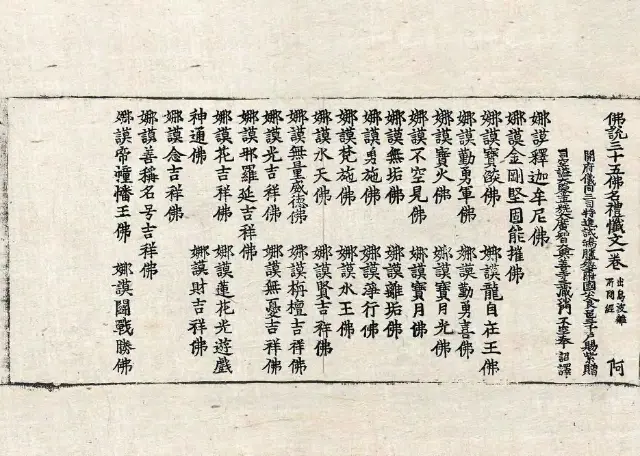 佛說三十五佛名禮懺文一卷 出烏波離所問經 阿
開府儀同三司特進試鴻臚卿肅國公食邑三千戶賜紫贈
司空謚大號大廣智大興善寺三藏沙門不空奉 詔譯
娜謨釋迦牟尼佛
娜謨金剛堅固能摧佛
娜謨寶焰佛 娜謨龍自在王佛
娜謨勤勇軍佛 娜謨勤勇喜佛
娜謨寶火佛 娜謨寶月光佛
娜謨不空見佛 娜謨寶月佛
娜謨無垢佛 娜謨離垢佛
娜謨勇施佛 娜謨淨行佛
娜謨梵施佛 娜謨水王佛
娜謨水天佛 娜謨賢吉祥佛
娜謨無量威德佛 娜謨栴檀吉祥佛
娜謨光吉祥佛 娜謨無憂吉祥佛
娜謨那羅延吉祥佛
娜謨花吉祥佛 娜謨蓮花光遊戲
神通佛 娜謨財吉祥佛
娜謨念吉祥佛
娜謨善稱名号吉祥佛
娜謨帝幢幡王佛 娜謨鬪戰勝佛